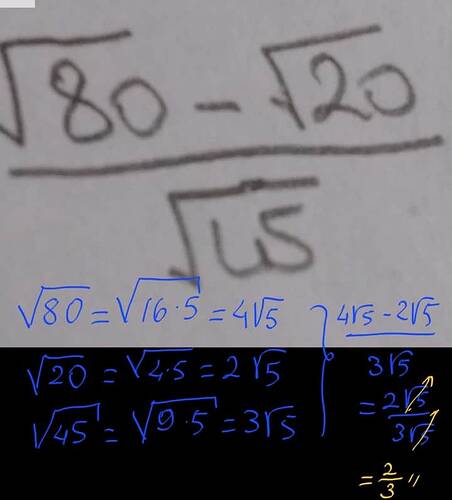 √80 - √20
√45
√80 = √16·5 = 4√5
√20 = √4·5 = 2√5
√45 = √9·5 = 3√5
4√5 - 2√5
3√5
= 2√5
3√5
= 2/3 //